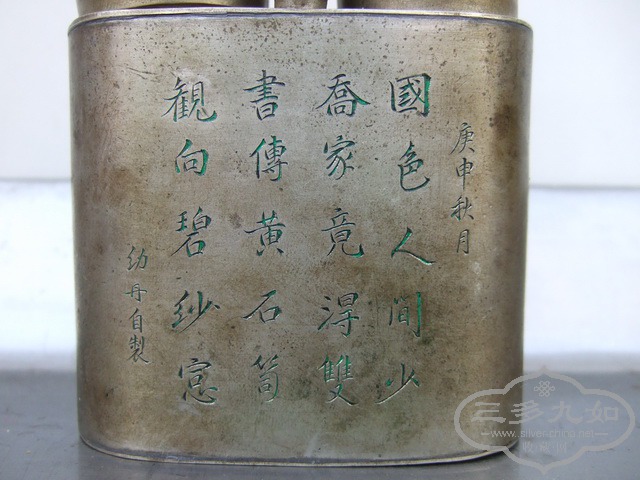 庚申秋月
國色人間少
喬家竟得雙
書傳黃石笥
観向碧紗窓
幼丹自製
三多九如